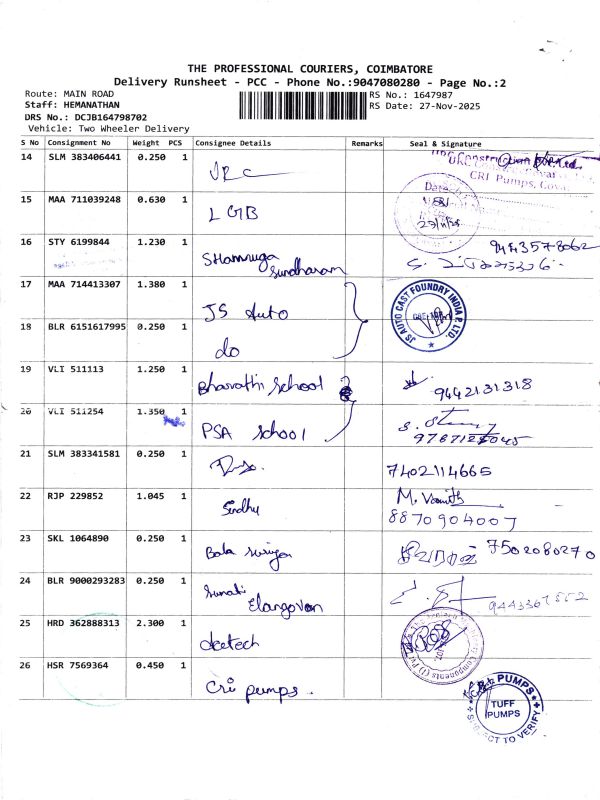 THE PROFESSIONAL COURIERS, COIMBATORE
Delivery Runsheet - PCC - Phone No.:9047080280 - Page No.:2
Route: MAIN ROAD
RS No.: 1647987
Staff: HEMANATHAN
RS Date: 27-Nov-2025
DRS No.: DCJB164798702
Vehicle: Two Wheeler Delivery
S No Consignment No Weight PCS Consignee Details Remarks Seal & Signature
14 SLM 383406441 0.250 1
CRI Pumps,
15 MAA 711039248 0.630 1 LGB
16 STY 6199844 1.230 1 Shamuga Sundharam 9443578062
17 MAA 714413307 1.380 1 JS Auto
JS AUTO CAST FOUNDRY INDIA P. LTD.
18 BLR 6151617995 0.250 1 do
19 VLI 511113 1.250 1 Bharathi School 9442131318
20 VLI 511254 1.350 1 PSA School
21 SLM 383341581 0.250 1 7402114665
22 RJP 229852 1.045 1 Sindhu M. Vamith
8870904007
23 SKL 1064890 0.250 1 Bala 7502080270
24 BLR 9000293283 0.250 1 Sumati Elangovan
25 HRD 362888313 2.300 1
26 HSR 7569364 0.450 1 Cri pumps.
PUMPS
TUFF PUMPS
SUBJECT TO VERIFY